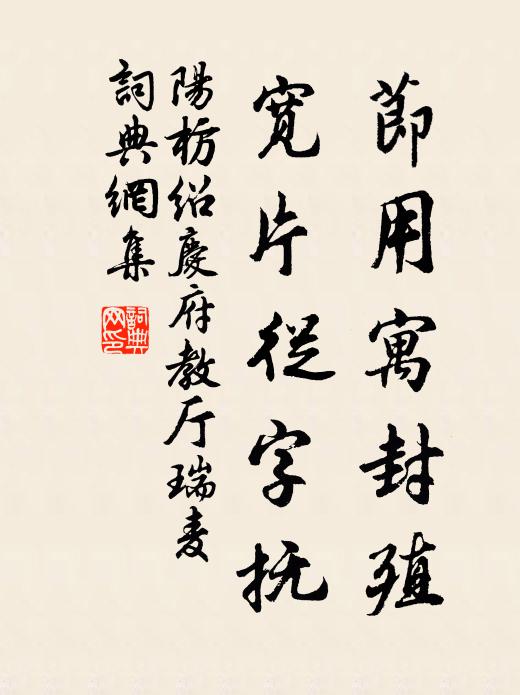 節用寓封殖
寬片從字抚
陽枋绍慶府教厅瑞麦
詞典網集
詞典
网印